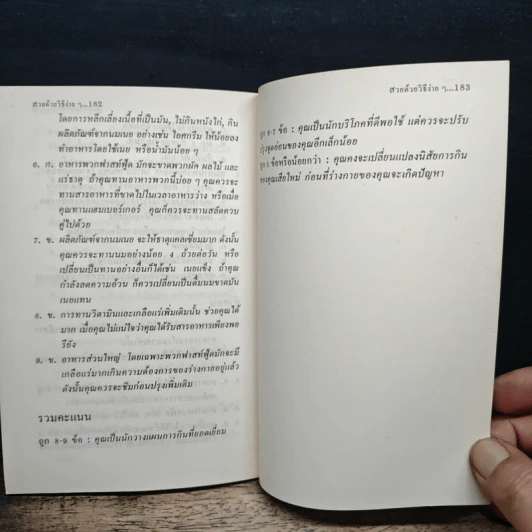 สวยด้วยวิธีง่าย ๆ...182
โดยการหลีกเลี่ยงเนื้อที่เป็นมัน, ไม่กินหนังไก่, กิน
ผลิตภัณฑ์จากนมเนย อย่างเช่น ไอศกรีม ให้น้อยลง
ทำอาหารโดยใช้เนย หรือน้ำมันน้อย ๆ
6. ก. อาหารพวกฟาสท์ฟู้ด มักจะขาดพวกผัก ผลไม้ และ
แร่ธาตุ ถ้าคุณทานอาหารพวกนี้บ่อย ๆ คุณควรจะ
ทานสารอาหารที่ขาดไปในเวลาอาหารว่าง หรือเมื่อ
คุณทานแฮมเบอร์เกอร์ คุณก็ควรจะทานสลัดควบ
คู่ไปด้วย
7. ข. ผลิตภัณฑ์จากนมเนย จะให้ธาตุแคลเซี่ยมมาก ดังนั้น
คุณควรจะทานนมอย่างน้อย 4 ถ้วยต่อวัน หรือ
เปลี่ยนเป็นทานอย่างอื่นก็ได้เช่น เนยแข็ง ถ้าคุณ
กำลังลดความอ้วน ก็ควรเปลี่ยนเป็นดื่มนมขาดมัน
เนยแทน
8. ข. การทานวิตามินและเกลือแร่เพิ่มเติมนั้น ช่วยคุณได้
มาก เมื่อคุณไม่แน่ใจว่าคุณได้รับสารอาหารเพียงพอ
รึยัง
9. ข. อาหารส่วนใหญ่ โดยเฉพาะพวกฟาสท์ฟู้ดมักจะมี
เกลือแร่มากเกินความต้องการของร่างกายอยู่แล้ว
ดังนั้นคุณควรจะชิมก่อนปรุงเพิ่มเติม
รวมคะแนน
ถูก 8-9 ข้อ : คุณเป็นนักวางแผนการกินที่ยอดเยี่ยม
สวยด้วยวิธีง่าย ๆ...183
ถูก 6-7 ข้อ : คุณเป็นนักบริโภคที่ดีพอใช้ แต่ควรจะปรับ
ปรุงจุดอ่อนของคุณอีกเล็กน้อย
ถูก 5 ข้อหรือน้อยกว่า : คุณคงจะเปลี่ยนแปลงนิสัยการกิน
ของคุณเสียใหม่ ก่อนที่ร่างกายของคุณจะเกิดปัญหา